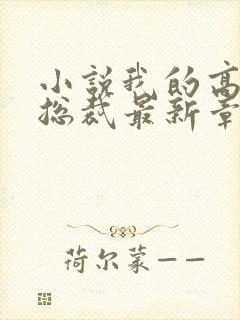 小説我的高
総裁最新章
荷尔蒙——